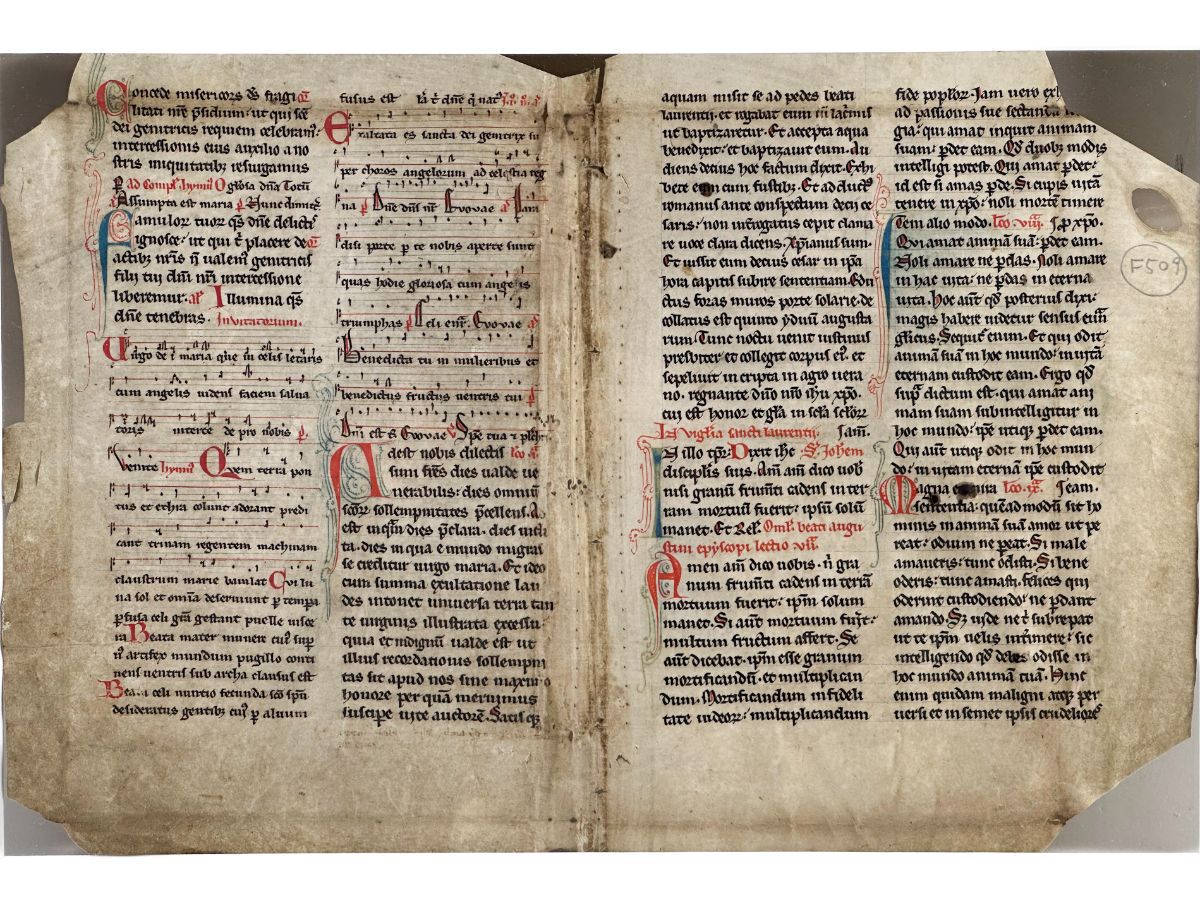 Concede misericors ds fragi
litati nre presidium: ut qui sce
dei genitricis requiem celebram:
intercessionis eius auxilio a no
stris iniquitatibz resurgamus
ad compl. hymn O gliosa dna
Assumpta est maria p Nunc dimit
Famulor tuor qs dne delict
ignosce: ut qui t placere de
actibz nris n valem genitricis
filij tui dni nri intercessione
liberemur. a Illumina qs
dne tenebras. Invitatorium.
maria que in celis letaris
cum angelis videns faciem salva
toris pro nobis p
Venite hymn Quem terra pon
tus et ethra colunt adorant predi
cant trinam regentem machinam
claustrum marie baiulat Cui lu
na sol et omnia deserviunt p tempa
pfusa celi gra gestant puelle visce
ra Beata mater munere cui sup
n artifex mundum pugillo conti
nens ventris sub archa clausus est
Beata celi nuntio fecunda sco spu
desideratus gentibz cui p alvum
fusus est
Exaltata es sancta dei genitrix su
per choros angelorum ad celestia reg
na p Dne dns nr Evovae a Para
disi porte p te nobis aperte sunt
quas hodie gloriosa cum angelis
triumphas p Celi enr. Evovae
Benedicta tu in mulieribus et
benedictus fructus ventris tui p
Dni est t Evovae Spe tua
Adest nobis dilectis
simi frs dies valde ve
nerabilis: dies omniu
scor sollempnitates pcellens. Ad
est inqm dies pclara. dies incli
ta. dies in qua e mundo migras
se creditur virgo maria. Et ideo
cum summa exultatione lau
des intonet universa terra tan
te virginis illustrata excessu
quia et indignu valde est ut
illius recordationis sollempni
tas sit apud nos sine maximo
honore per qua meruimus
suscipe vite auctore. Satis
aquam misit se ad pedes beati
laurentii. et rogabat eum in lacrimis
ut baptizaretur. Et accepta aqua
benedixit: et baptizavit eum. Au
diens decius hoc factum dixit. Exhi
bete eum cum fustibz. Et ad duct
romanus ante conspectum decij ce
saris: non interrogatus cepit clama
re voce clara dicens. Xpianus sum.
Et iussit eum decius cesar in ipa
hora capiti subire sententiam. Edu
ctus foras muros porte solarie. de
collatus est quinto ydus augusta
rum. Tunc noctu venit iustinus
presbiter et collegit corpus ei. et
sepelivit in cripta in agro vera
no. regnante dno nro ihu xpo.
cui est honor et gla in scla sclor
In vigilia sancti laurentij.
In illo tpe. Dixit ihc S. Johem
discipulis suis. Am am dico vob
nisi granu frumti cadens in ter
ram mortuu fuerit: ipsu solu
manet. Et Rel. Oml. beati augu
stini epyscopi lectio vij.
Amen am dico vobis. n gra
num frumti cadens in teram
mortuum fuerit: ipm solum
manet. Si aut mortuum fuit:
multum fructum affert. Se
aut dicebat. ipm esse granum
mortificandu. et multiplican
dum. Mortificandum infideli
tate iudeor: multiplicandum
fide poplor. Jam vero
ad passionis sue sectanda
gia: qui amat inquit animam
suam: pdet eam. Qd duobz modis
intelligi potest. Qui amat pdet:
id est si amas pde. Si cupis vita
tenere in xpo: noli morte timere
Item alio modo. lco viij. pro xpo.
Qui amat animam sua: pdet eam.
Noli amare ne pdas. Noli amare
in hac vita: ne pdas in eterna
vita. Hoc aut qd posterius dixi:
magis habere videtur sensus eum
glicus. Sequit enim. Et qui odit
animam sua in hoc mundo: in vita
eternam custodit eam. Ergo qd
sup dictum est. qui amat ani
mam suam subintelligitur in
hoc mundo: ipe utique pdet eam.
Qui aut utique odit in hoc mun
do: in vitam eternam ipe custodit
Magna lco ix. eam.
sententia: quead modu sit ho
minis in animam sua amor ut pe
reat: odium ne peat. Si male
amaveris: tunc odisti. Si bene
oderis: tunc amasti. felices qui
oderunt custodiendo: ne pdant
amando. Sz vide ne t subrepat
ut te ipm velis intimere: sic
intelligendo qd debes odisse in
hoc mundo animam tua. Hinc
enim quidam maligni atqz per
versi et in semet ipsis crudelior
F509